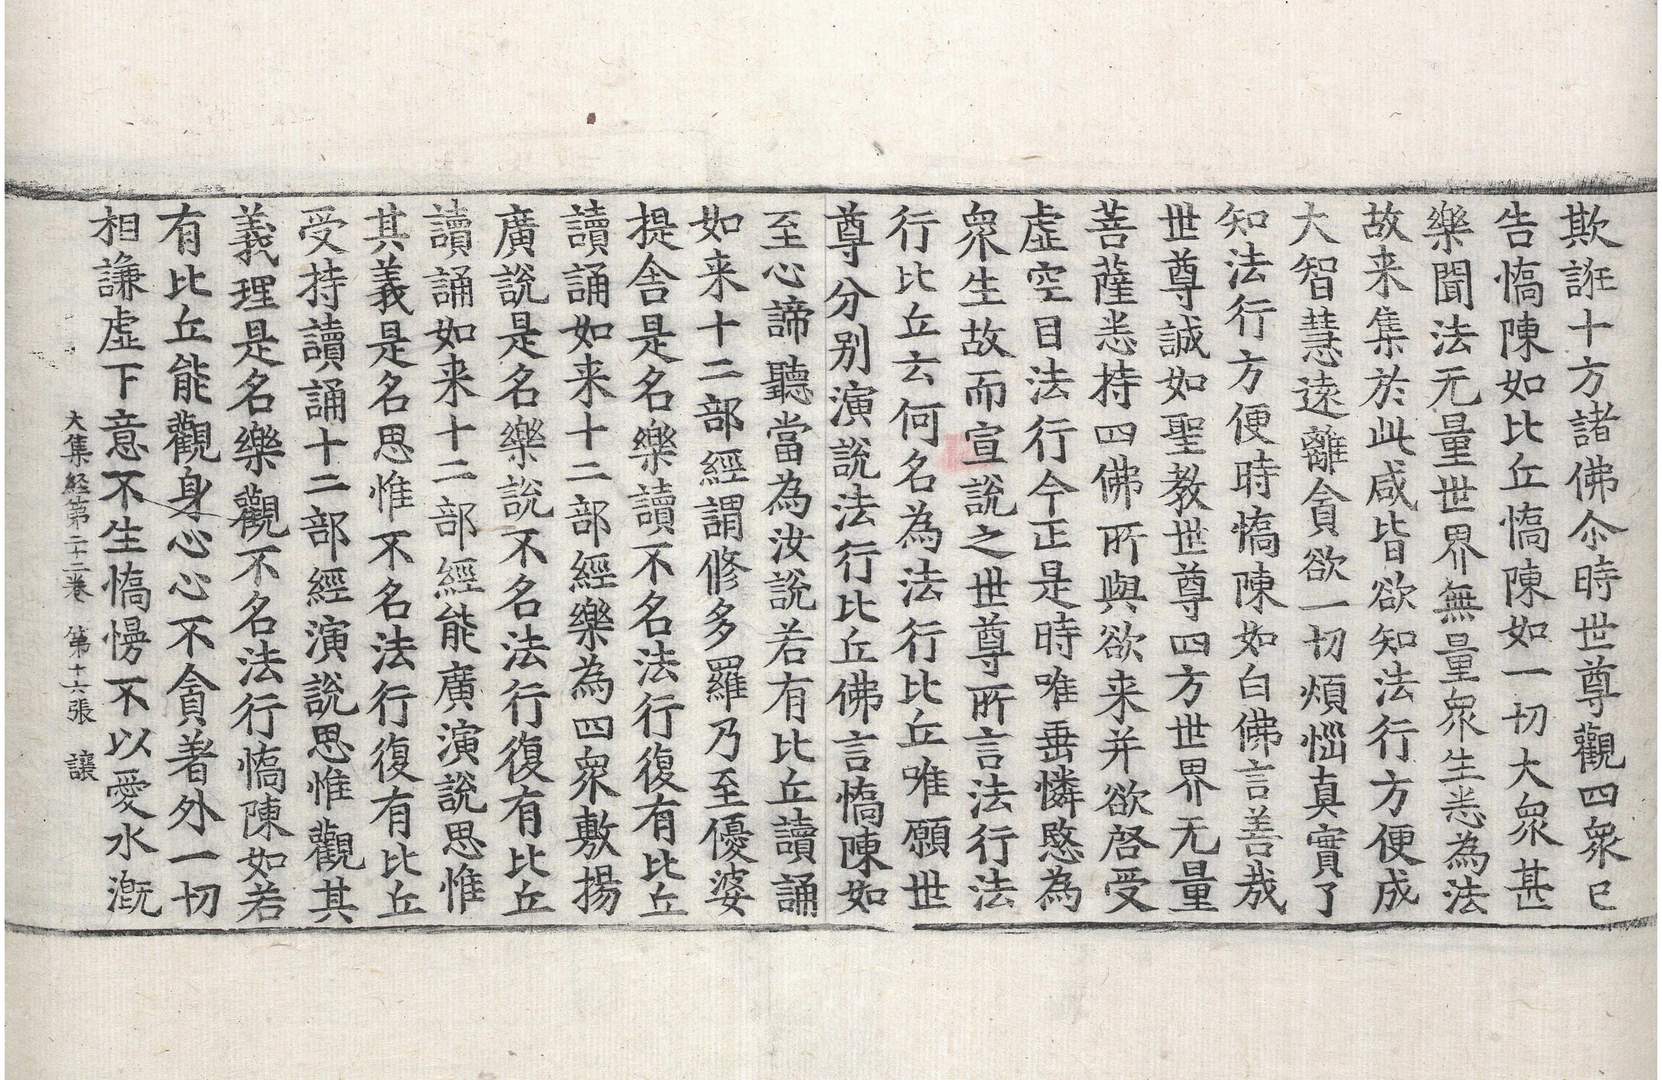 欺誑十方諸佛尒時世尊觀四衆已
告憍陳如比丘憍陳如一切大衆甚
樂聞法无量世界無量衆生悉為法
故来集於此咸皆欲知法行方便成
大智慧遠離貪欲一切煩惱真實了
知法行方便時憍陳如白佛言善哉
世尊誠如聖教世尊四方世界无量
菩薩悉持四佛所與欲来并欲啓受
虛空目法行今正是時唯垂憐愍為
衆生故而宣說之世尊所言法行法
行比丘云何名為法行比丘唯願世
尊分別演說法行比丘佛言憍陳如
至心諦聽當為汝說若有比丘讀誦
如来十二部經謂修多羅乃至優婆
提舍是名樂讀不名法行復有比丘
讀誦如来十二部經樂為四衆敷揚
廣說是名樂說不名法行復有比丘
讀誦如来十二部經能廣演說思惟
其義是名思惟不名法行復有比丘
受持讀誦十二部經演說思惟觀其
義理是名樂觀不名法行憍陳如若
有比丘能觀身心心不貪著外一切
相謙虛下意不生憍慢不以愛水漑
大集経第二十二卷 第十六張 讓